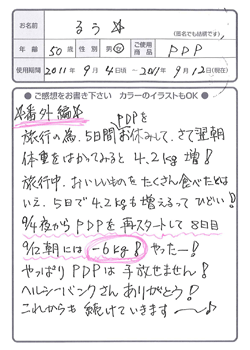 お名前 るう☆
(匿名でも結構です)
年齢 50歳 性別 男・女 ご使用商品 PDP
使用期間 2011年 9月 4日頃 ～ 2011年 9月 12日(現在)
●ご感想をお書き下さい カラーのイラストもOK●
☆番外編☆
PDPを
旅行の為、5日間お休みして、さて翌朝
体重をはかってみると 4.2kg増!
旅行中、おいしいものをたくさん食べたとは
いえ、5日で4.2kgも増えるってひどい!
9/4夜からPDPを再スタートして8日目
9/12朝には -6kg! やったー!
やっぱりPDPは手放せません!
ヘルシーバンクさん ありがとう!
これからも続けていきます〜♪